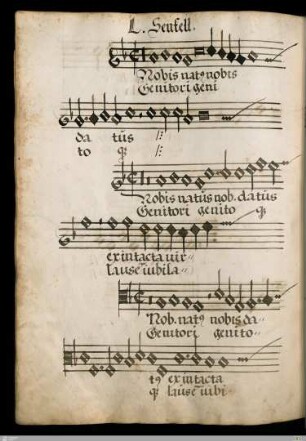 L. Senfell.
Nobis natꝰ nobis
Genitori geni
da tus /:
to qꝫ /:
Nobis natus nob. datus
Genitori genito qꝫ
ex intacta vir
lause iubila
Nob. natꝰ nobis da
Genitori genito
tꝰ ex intacta
qꝫ lause iubi